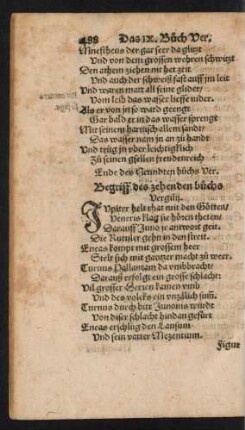 488 Das IX. Bůch Ver.
Mnestheus der gar seer da glitzt
Und von dem grossen wehren schwitzt
Den athem ziehen mit het zeit
Und auch der schweiß fast auff im leit
Und waren matt all seine glider/
Vom leib das wasser lieffe nider.
Als er von jn so ward geengt
Gar bald er in das wasser sprengt
Mit seinem harnisch allem sandt/
Das wasser nam jn an zu handt
Und trůg jn vber leichtigklich
Zů seinen gsellen frendenreich
Ende des Neundten bůchs Ver.
Begriff des zehenden bůchs
Vergilij.
Jupiter helt rhat mit den Götten/
Veneris klag sie hören theten/
Darauff Juno je antwort geit.
Die Rutuler gehn in den streit.
Eneas kompt mit grossem heer
Stelt sich mit gantzer macht zů weer.
Turnus Pallantem da vmbbracht
Darauß erfolgt ein grosse schlacht
Vil grosser Herren kamen vmb
Und des volcks ein vnzälich sum.
Turnus durch bitt Junonis würdt
Von diser schlacht hindan gefürt
Eneas erschlůg den Lausum
Und sein vatter Mezentium.
Figur